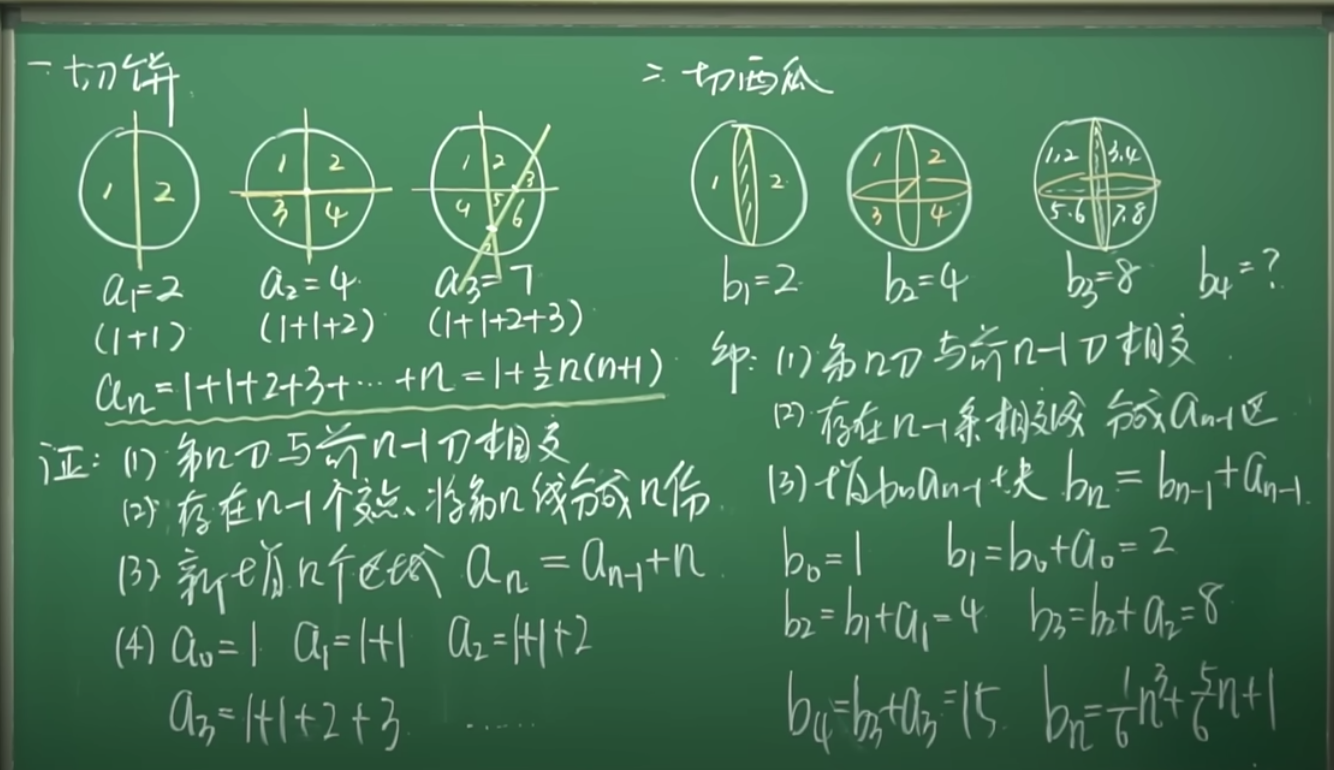 一 切饼
1 2
1 2
3 4
1 2 3
4 5 6
7
a₁=2
a₂=4
a₃=7
(1+1)
(1+1+2)
(1+1+2+3)
aₙ=1+1+2+3+⋯+n=1+½n(n+1)
证: (1) 第n刀与前n-1刀相交
(2) 存在n-1个交点、将第n线分成n份
(3) 新增n个区域 aₙ=aₙ₋₁+n
(4) a₀=1 a₁=1+1 a₂=1+1+2
a₃=1+1+2+3 ……
二. 切西瓜
1 2
1 2
3 4
1,2 3.4
5.6 7.8
b₁=2
b₂=4
b₃=8
b₄=?
(1) 第n刀与前n-1刀相交
(2) 存在n-1条相交线 分成aₙ₋₁区
(3) 增加aₙ₋₁块 bₙ=bₙ₋₁+aₙ₋₁
b₀=1 b₁=b₀+a₀=2
b₂=b₁+a₁=4 b₃=b₂+a₂=8
b₄=b₃+a₃=15 bₙ=1/6n³+5/6n+1